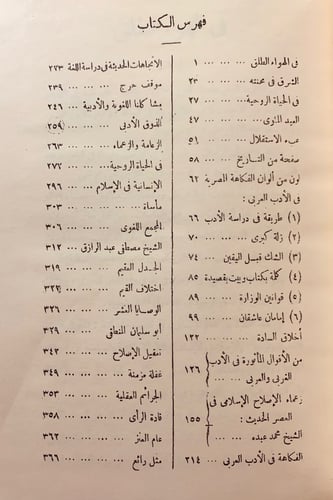 فهرس الكتاب
فى الهواء الطلق ... ... ... ١
الشرق فى محنته ... ... ... ٢٣
فى الحياة الروحية ... ... ... ٢٧
العيد المئوى ... ... ... ... ٤٧
عبء الاستقلال ... ... ... ٥١
صفحة من التاريخ ... ... ... ٥٨
لون من ألوان الفكاهة المصرية ٦٢
فى الأدب العربى :
(١) طريقة فى دراسة الأدب ٦٦
(٢) زلة كبرى ... ... ... ٧٠
(٣) الشك قبل اليقين ... ٧٤
(٤) كلمة بكتاب وبيت بقصيدة ٨٥
(٥) قوانين الوزارة ... ... ٨٩
(٦) إمامان عاشقان ... ... ٩٩
أخلاق السادة ... ... ... ١٢٢
من الأقوال المأثورة فى الأدب
الغربى والعربى ... ... ... ١٢٦
زعماء الإصلاح الإسلامى فى
العصر الحديث :
الشيخ محمد عبده ... ... ١٥٥
الفكاهة فى الأدب العربى ... ٢١٤
الاتجاهات الحديثة فى دراسة اللغة ٢٢٣
موقف حرج ... ... ... ٢٣٩
مشاكلنا اللغوية والأدبية ... ٢٤٦
الذوق الأدبى ... ... ... ٢٥٩
الزعامة والزعماء ... ... ... ٢٦٣
فى الحياة الروحية ... ... ... ٢٧٧
الإنسانية فى الإسلام ... ... ٢٩٦
مأساة ... ... ... ... ٣٠٣
المجمع اللغوى ... ... ... ٣٠٦
الشيخ مصطفى عبد الرازق ... ٣١٢
الجدل العقيم ... ... ... ٣١٩
اختلاف القيم ... ... ... ٣٢٢
الوصايا العشر ... ... ... ٣٢٦
أبو سليمان المنطقى ... ... ٣٢٩
تمثيل الإصلاح ... ... ... ٣٤٢
غفلة مزمنة ... ... ... ٣٤٩
الجرائم العقلية ... ... ... ٣٥٣
قادة الرأى ... ... ... ٣٥٨
عام المنز ... ... ... ٣٦٢
مثل رائع ... ... ... ٣٦٦